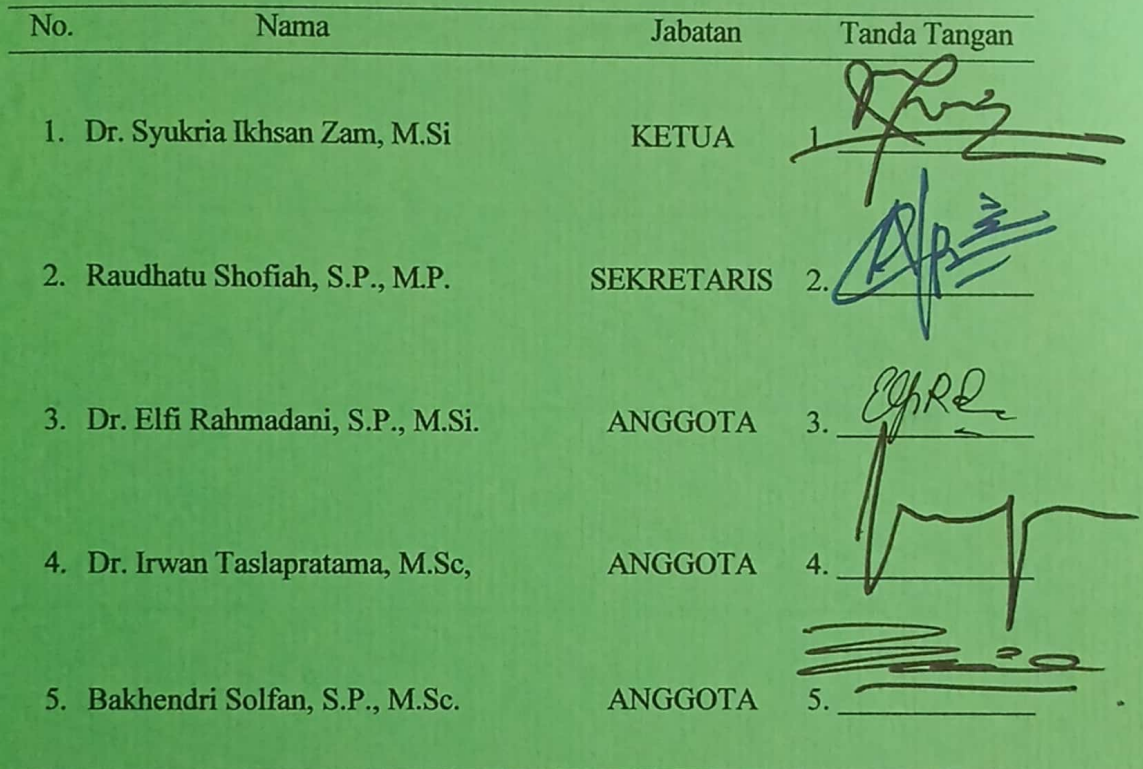 No. Nama Jabatan Tanda Tangan
1. Dr. Syukria Ikhsan Zam, M.Si KETUA 1
2. Raudhatu Shofiah, S.P., M.P. SEKRETARIS 2.
3. Dr. Elfi Rahmadani, S.P., M.Si. ANGGOTA 3.
4. Dr. Irwan Taslapratama, M.Sc, ANGGOTA 4.
5. Bakhendri Solfan, S.P., M.Sc. ANGGOTA 5.